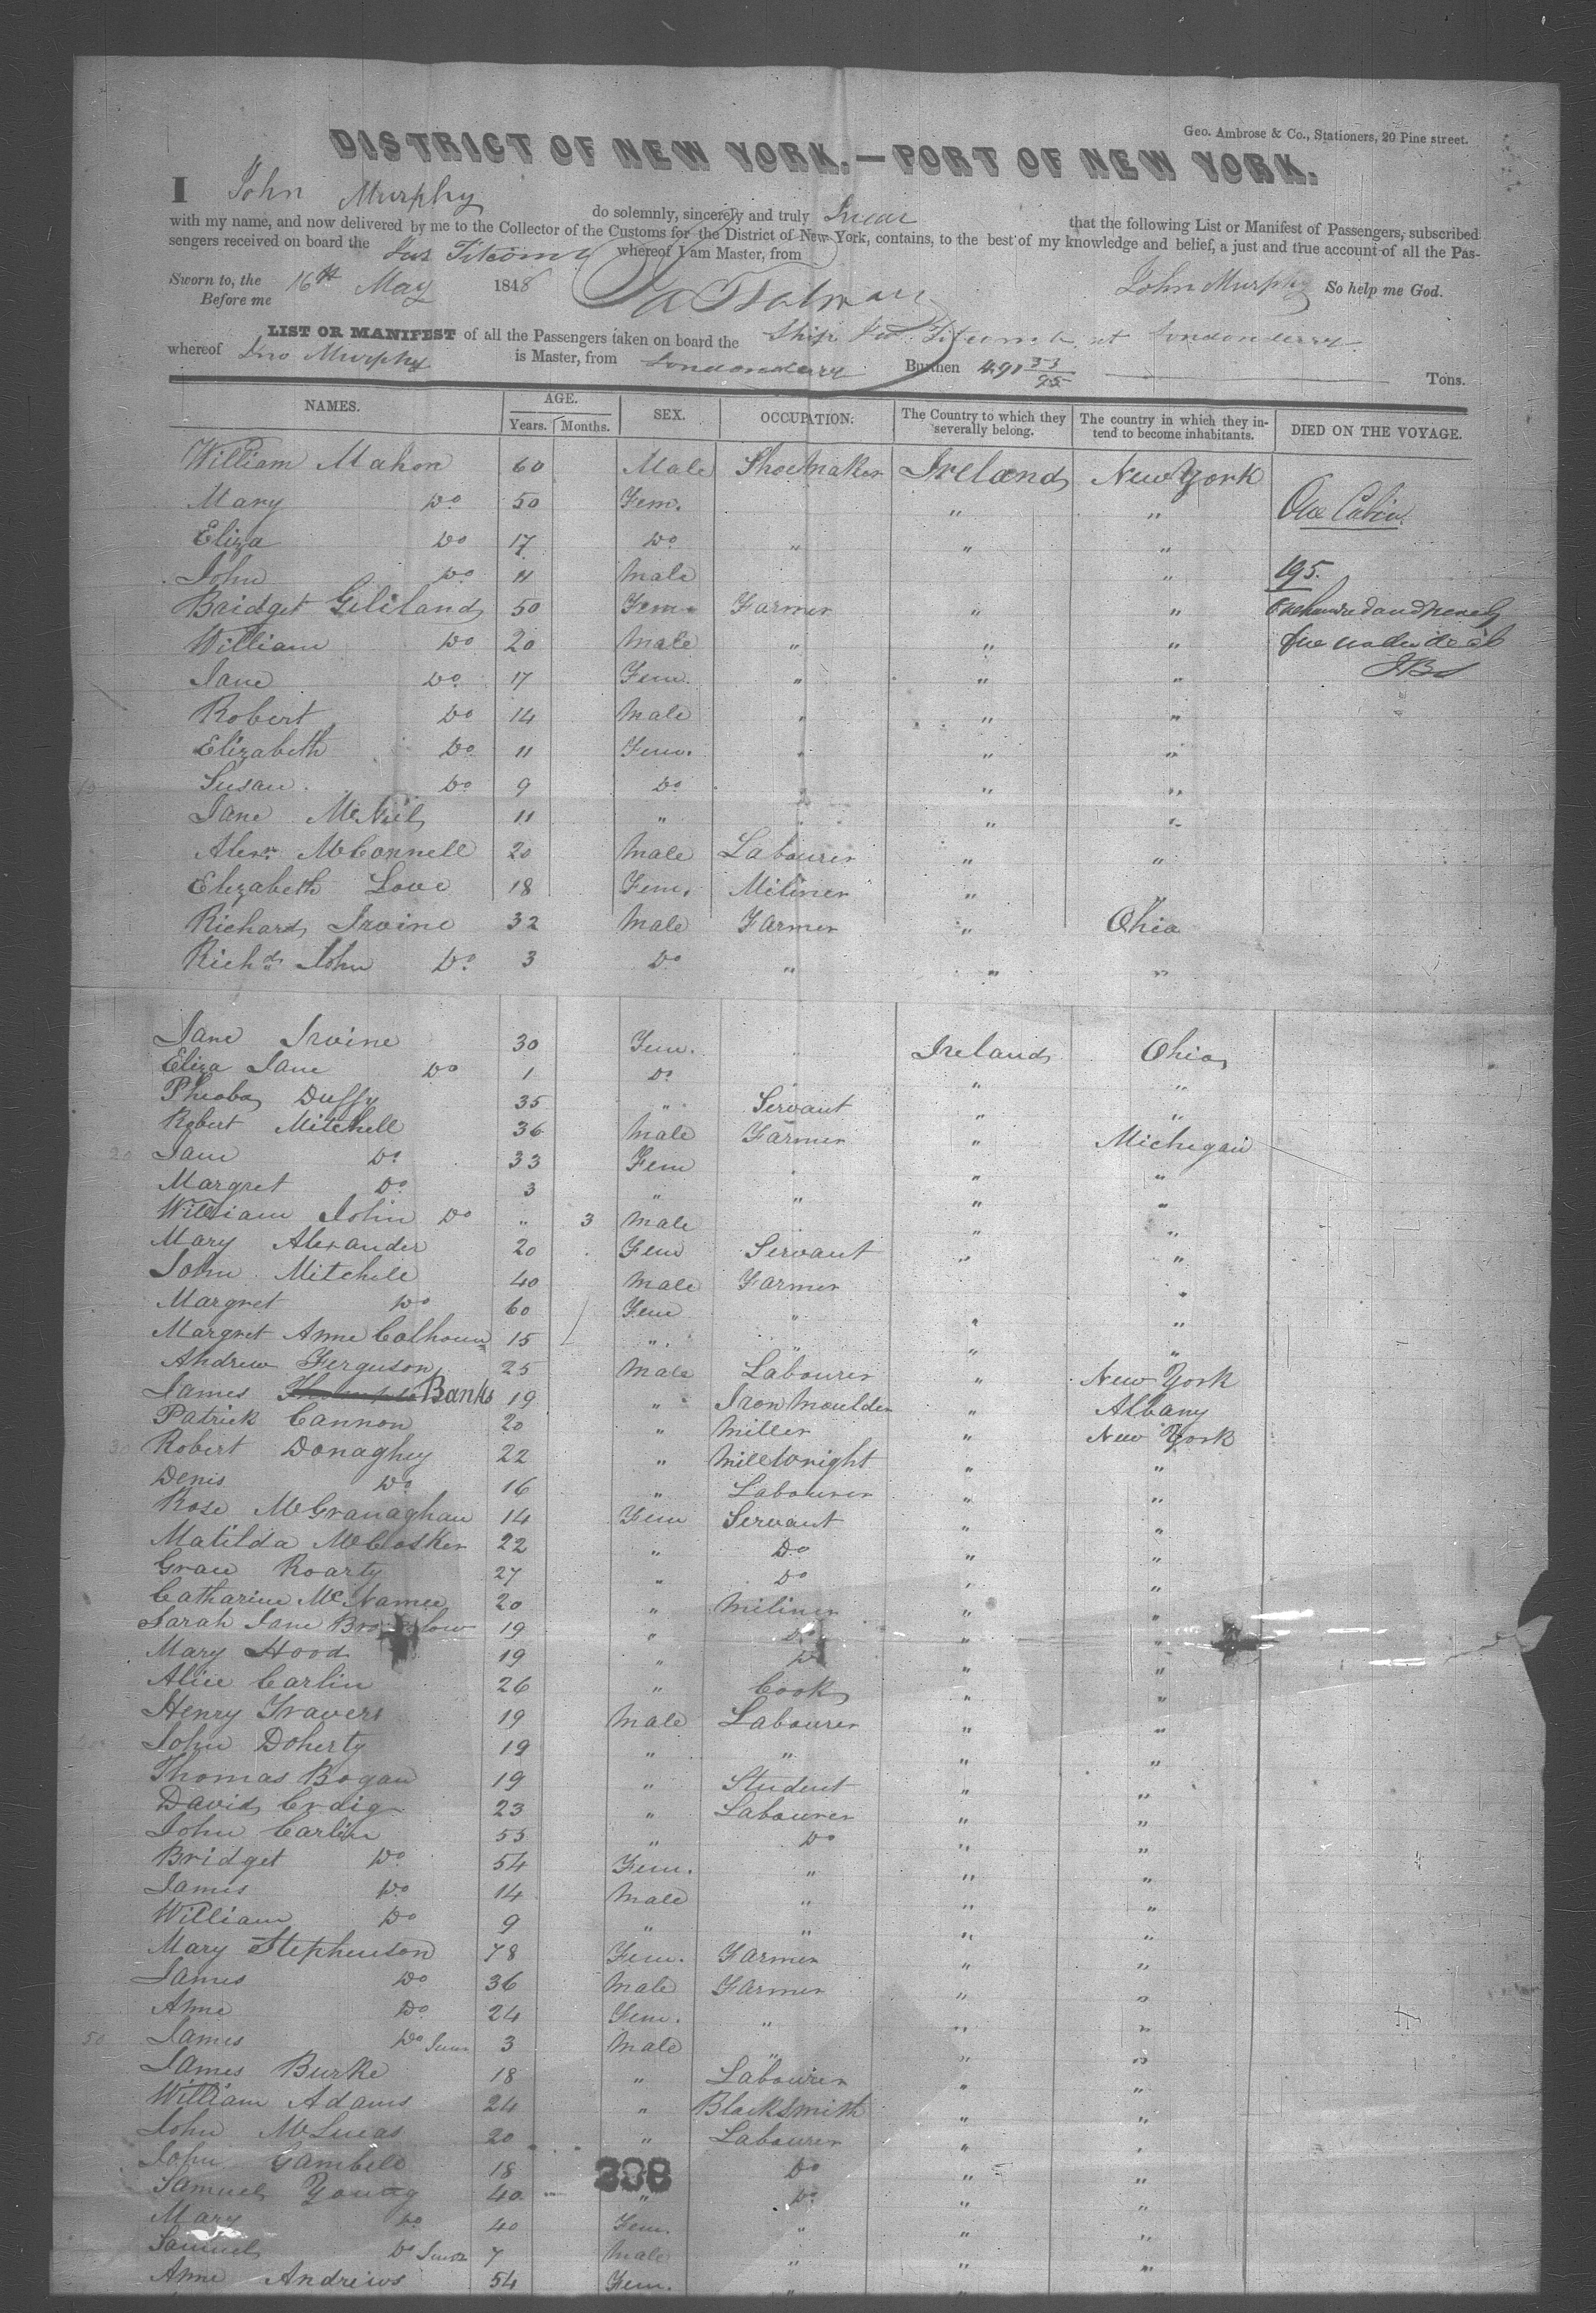 Geo. Ambrose & Co., Stationers, 20 Pine street.
DISTRICT OF NEW YORK.—PORT OF NEW YORK.
I John Murphy do solemnly, sincerely and truly Swear that the following List or Manifest of Passengers, subscribed
with my name, and now delivered by me to the Collector of the Customs for the District of New York, contains, to the best of my knowledge and belief, a just and true account of all the Pas-
sengers received on board the Jas Titcomb whereof I am Master, from
Sworn to, the 16th May 1848 John Murphy So help me God.
Before me
LIST OR MANIFEST of all the Passengers taken on board the Ship Jas Titcomb at Londonderry
whereof Jno Murphy is Master, from Londonderry Burthen 491 33/95 Tons.
NAMES. AGE. SEX. OCCUPATION. The Country to which they severally belong. The country in which they in-tend to become inhabitants. DIED ON THE VOYAGE.
Years. Months.
William Mahon 60 Male Shoemaker Ireland New York
Mary Do 50 Fem. " " One Cabin
Eliza Do 17 Do " " "
John Do 11 Male " 195.
Bridget Gilliland 50 Fem. Farmer " "
William Do 20 Male " " "
Jane Do 17 Fem. " " "
Robert Do 14 Male " " "
Elizabeth Do 11 Fem. " " "
Susan Do 9 Do " "
Jane McNiel 11 " " " "
Alexr McConnell 20 Male Labourer " "
Elizabeth Love 18 Fem. Miliner "
Richard Irvine 32 Male Farmer " Ohio
Richd John Do 3 Do " " "
Jane Irvine 30 Fem. " Ireland Ohio
Eliza Jane Do 1 Do " "
Pheoba Duffy 35 " Servant " "
Robert Mitchell 36 Male Farmer " Michigan
20 Jane Do 33 Fem " " "
Margret Do 3 " " " "
William John Do " 3 Male " "
Mary Alexander 20 Fem Servant " "
John Mitchell 40 Male Farmer "
Margret Do 60 Fem " " "
Margret Anne Calhoun 15 " " " "
Andrew Ferguson 25 Male Labourer " New York
James Banks 19 " Iron Moulder " Albany
Patrick Cannon 20 " Miller " New York
30 Robert Donaghey 22 " Millwright " "
Denis Do 16 " Labourer " "
Rose McGranaghan 14 Fem Servant " "
Matilda McCosker 22 " Do " "
Grace Roarty 27 " Do " "
Catharine McNamee 20 " Miliner " "
Sarah Jane 19 " Do " "
Mary Hood 19 " Do " "
Alice Carlin 26 " Cook " "
Henry Travers 19 Male Labourer " "
John Doherty 19 " " " "
Thomas Bogan 19 " Student " "
David Craig 23 " Labourer " "
John Carlin 55 " Do " "
Bridget Do 54 Fem. " " "
James Do 14 Male " " "
William Do 9 " " " "
Mary Stephenson 78 Fem. Farmer " "
James Do 36 Male Farmer " "
Anne Do 24 Fem. " " "
50 James Do Junr 3 Male " " "
James Burke 18 " Labourer " "
William Adams 24 " Blacksmith " "
John McLucas 20 " Labourer " "
John Gambell 18 " Do " "
Samuel Young 40 " Do " "
Mary Do 40 Fem. " " "
Samuel Do Junr 7 Male " " "
Anne Andrews 54 Fem. "